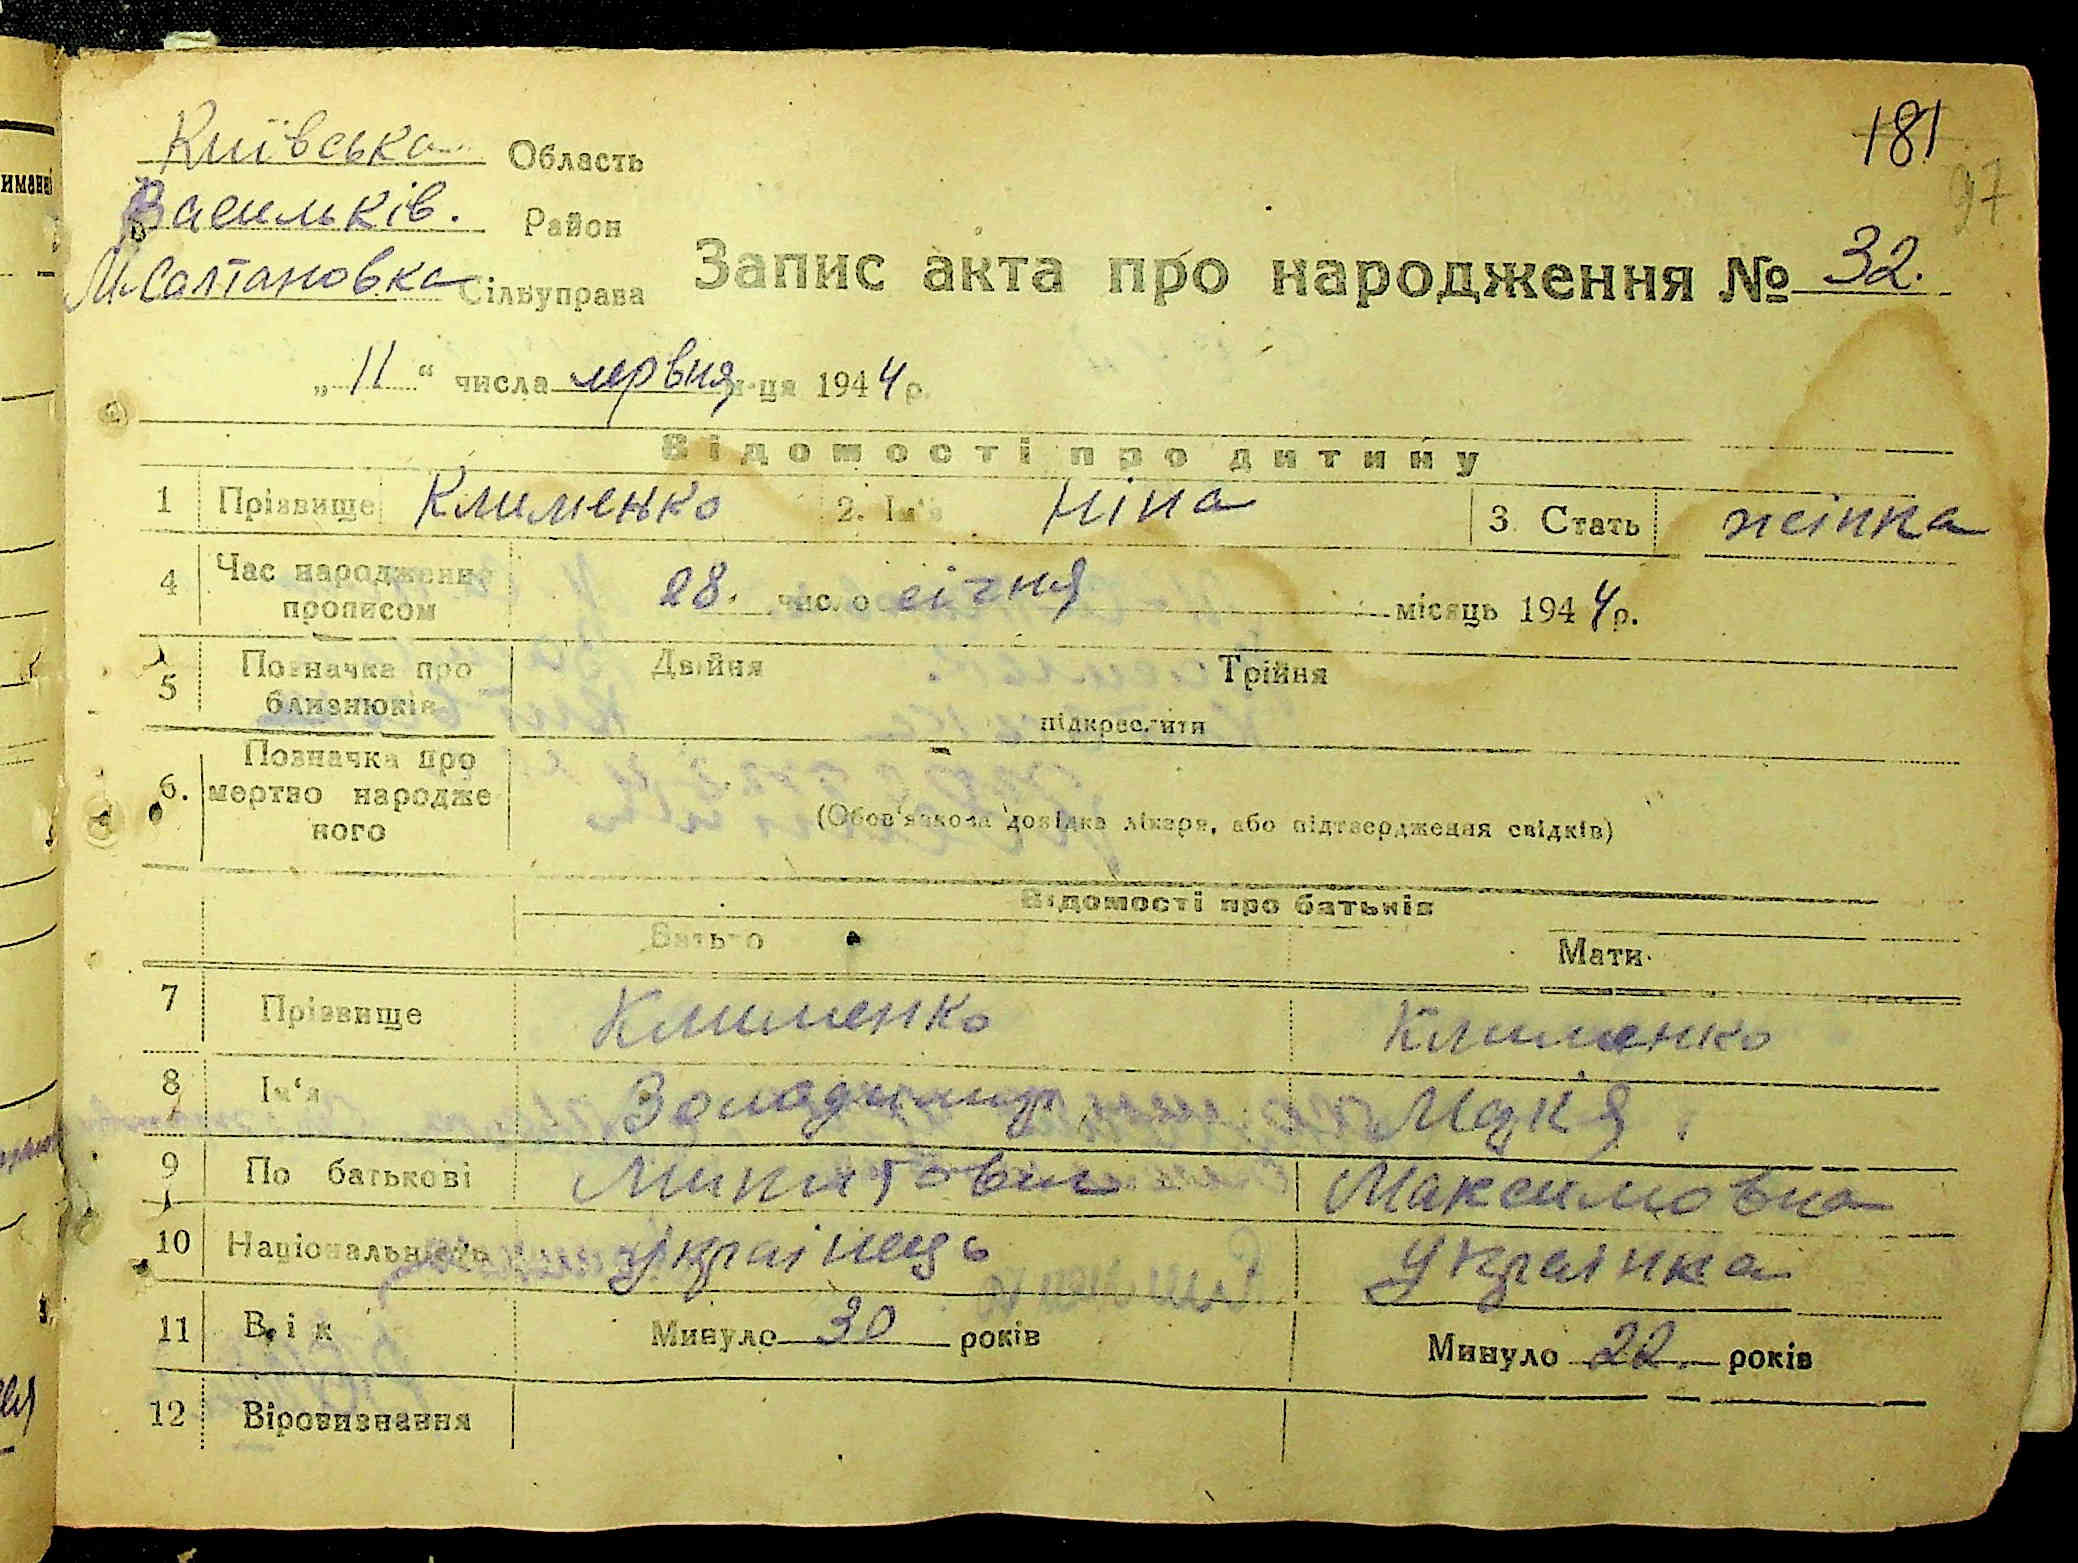 181
97
Київська Область
Васильків. Район
М. Солтановка Сільуправа
Запис акта про народження № 32.
„11“ числа червня м-ця 1944 р.
Відомості про дитину
1 Прізвище Клименко 2. Ім'я Ніна 3. Стать жінка
4 Час народження прописом 28. число січня місяць 1944 р.
5 Позначка про близнюків Двійня Трійня
підкреслити
6. Позначка про мертво народженого
(Обов'язкова довідка лікаря, або підтвердження свідків)
Відомості про батьків
Батько Мати
7 Прізвище Клименко Клименко
8 Ім'я Володимир
9 По батькові Микитович Максимовна
10 Національність Українець Українка
11 Вік Минуло 30 років Минуло 22 років
12 Віровизнання